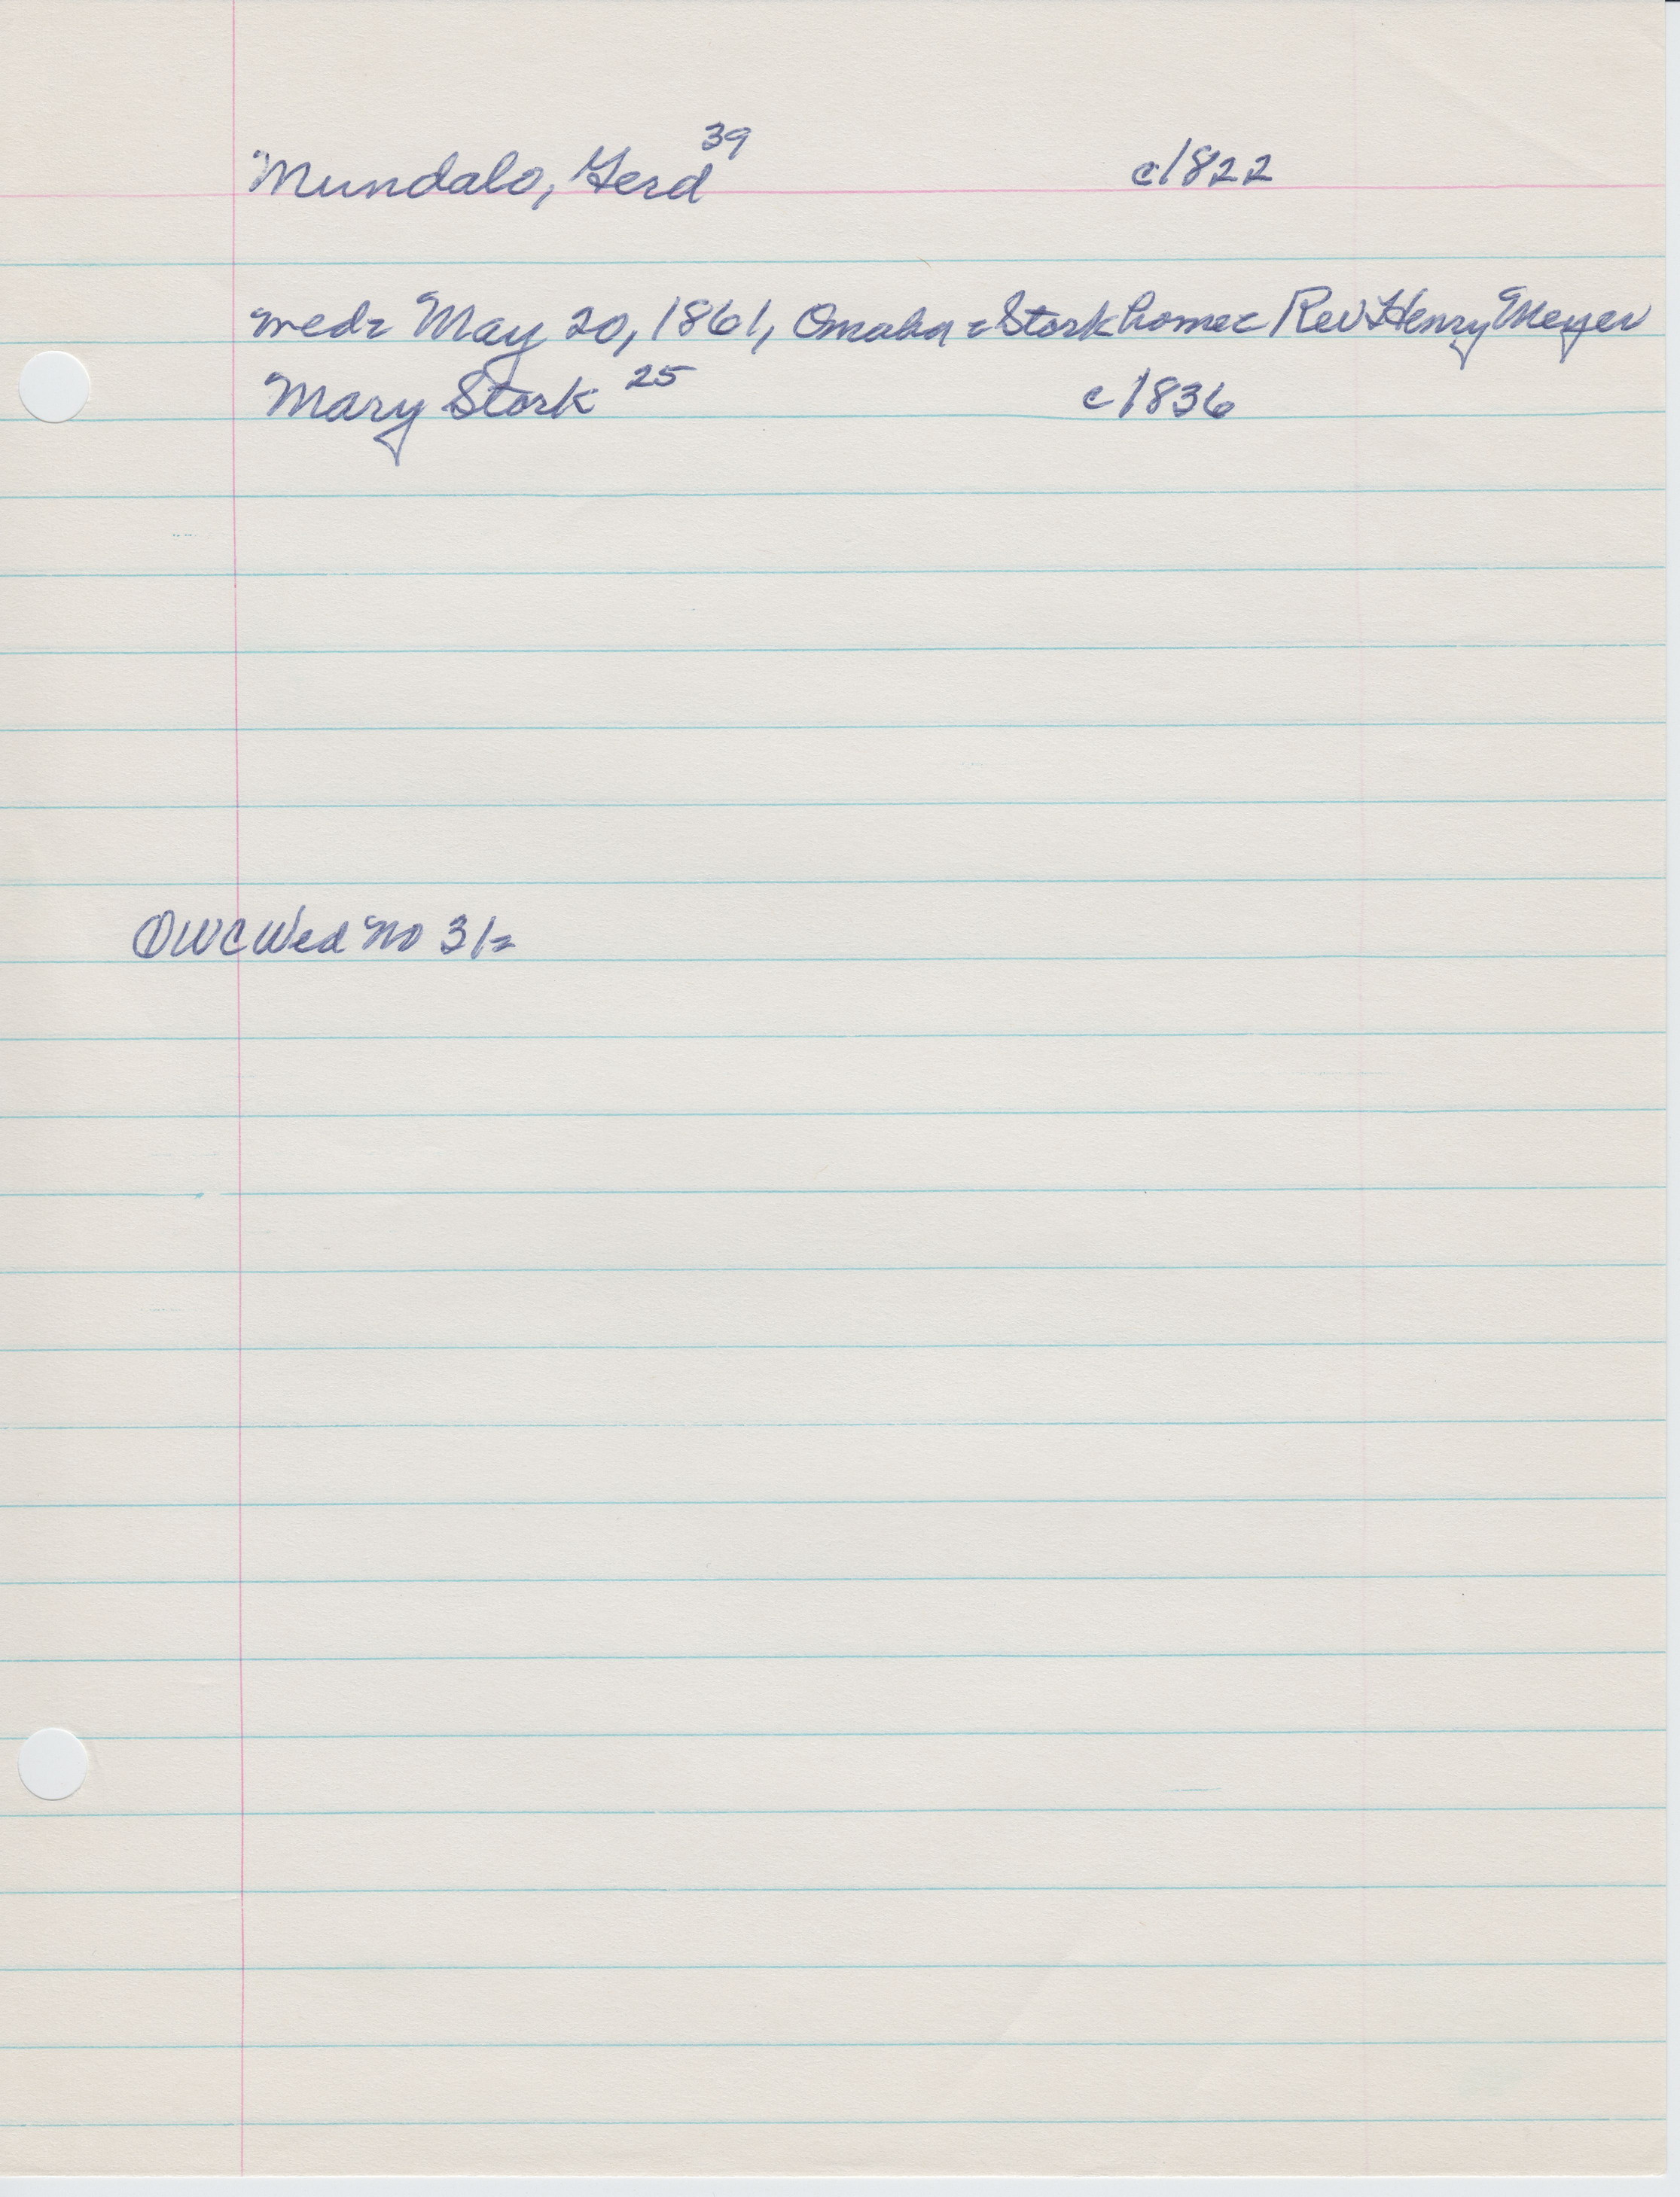 Mundalo, Gerd 39 c1822
wed= May 20, 1861, Omaha = Stork home = Rev Henry Meyer
Mary Stork 25 c1836
① WC Wed No 31=